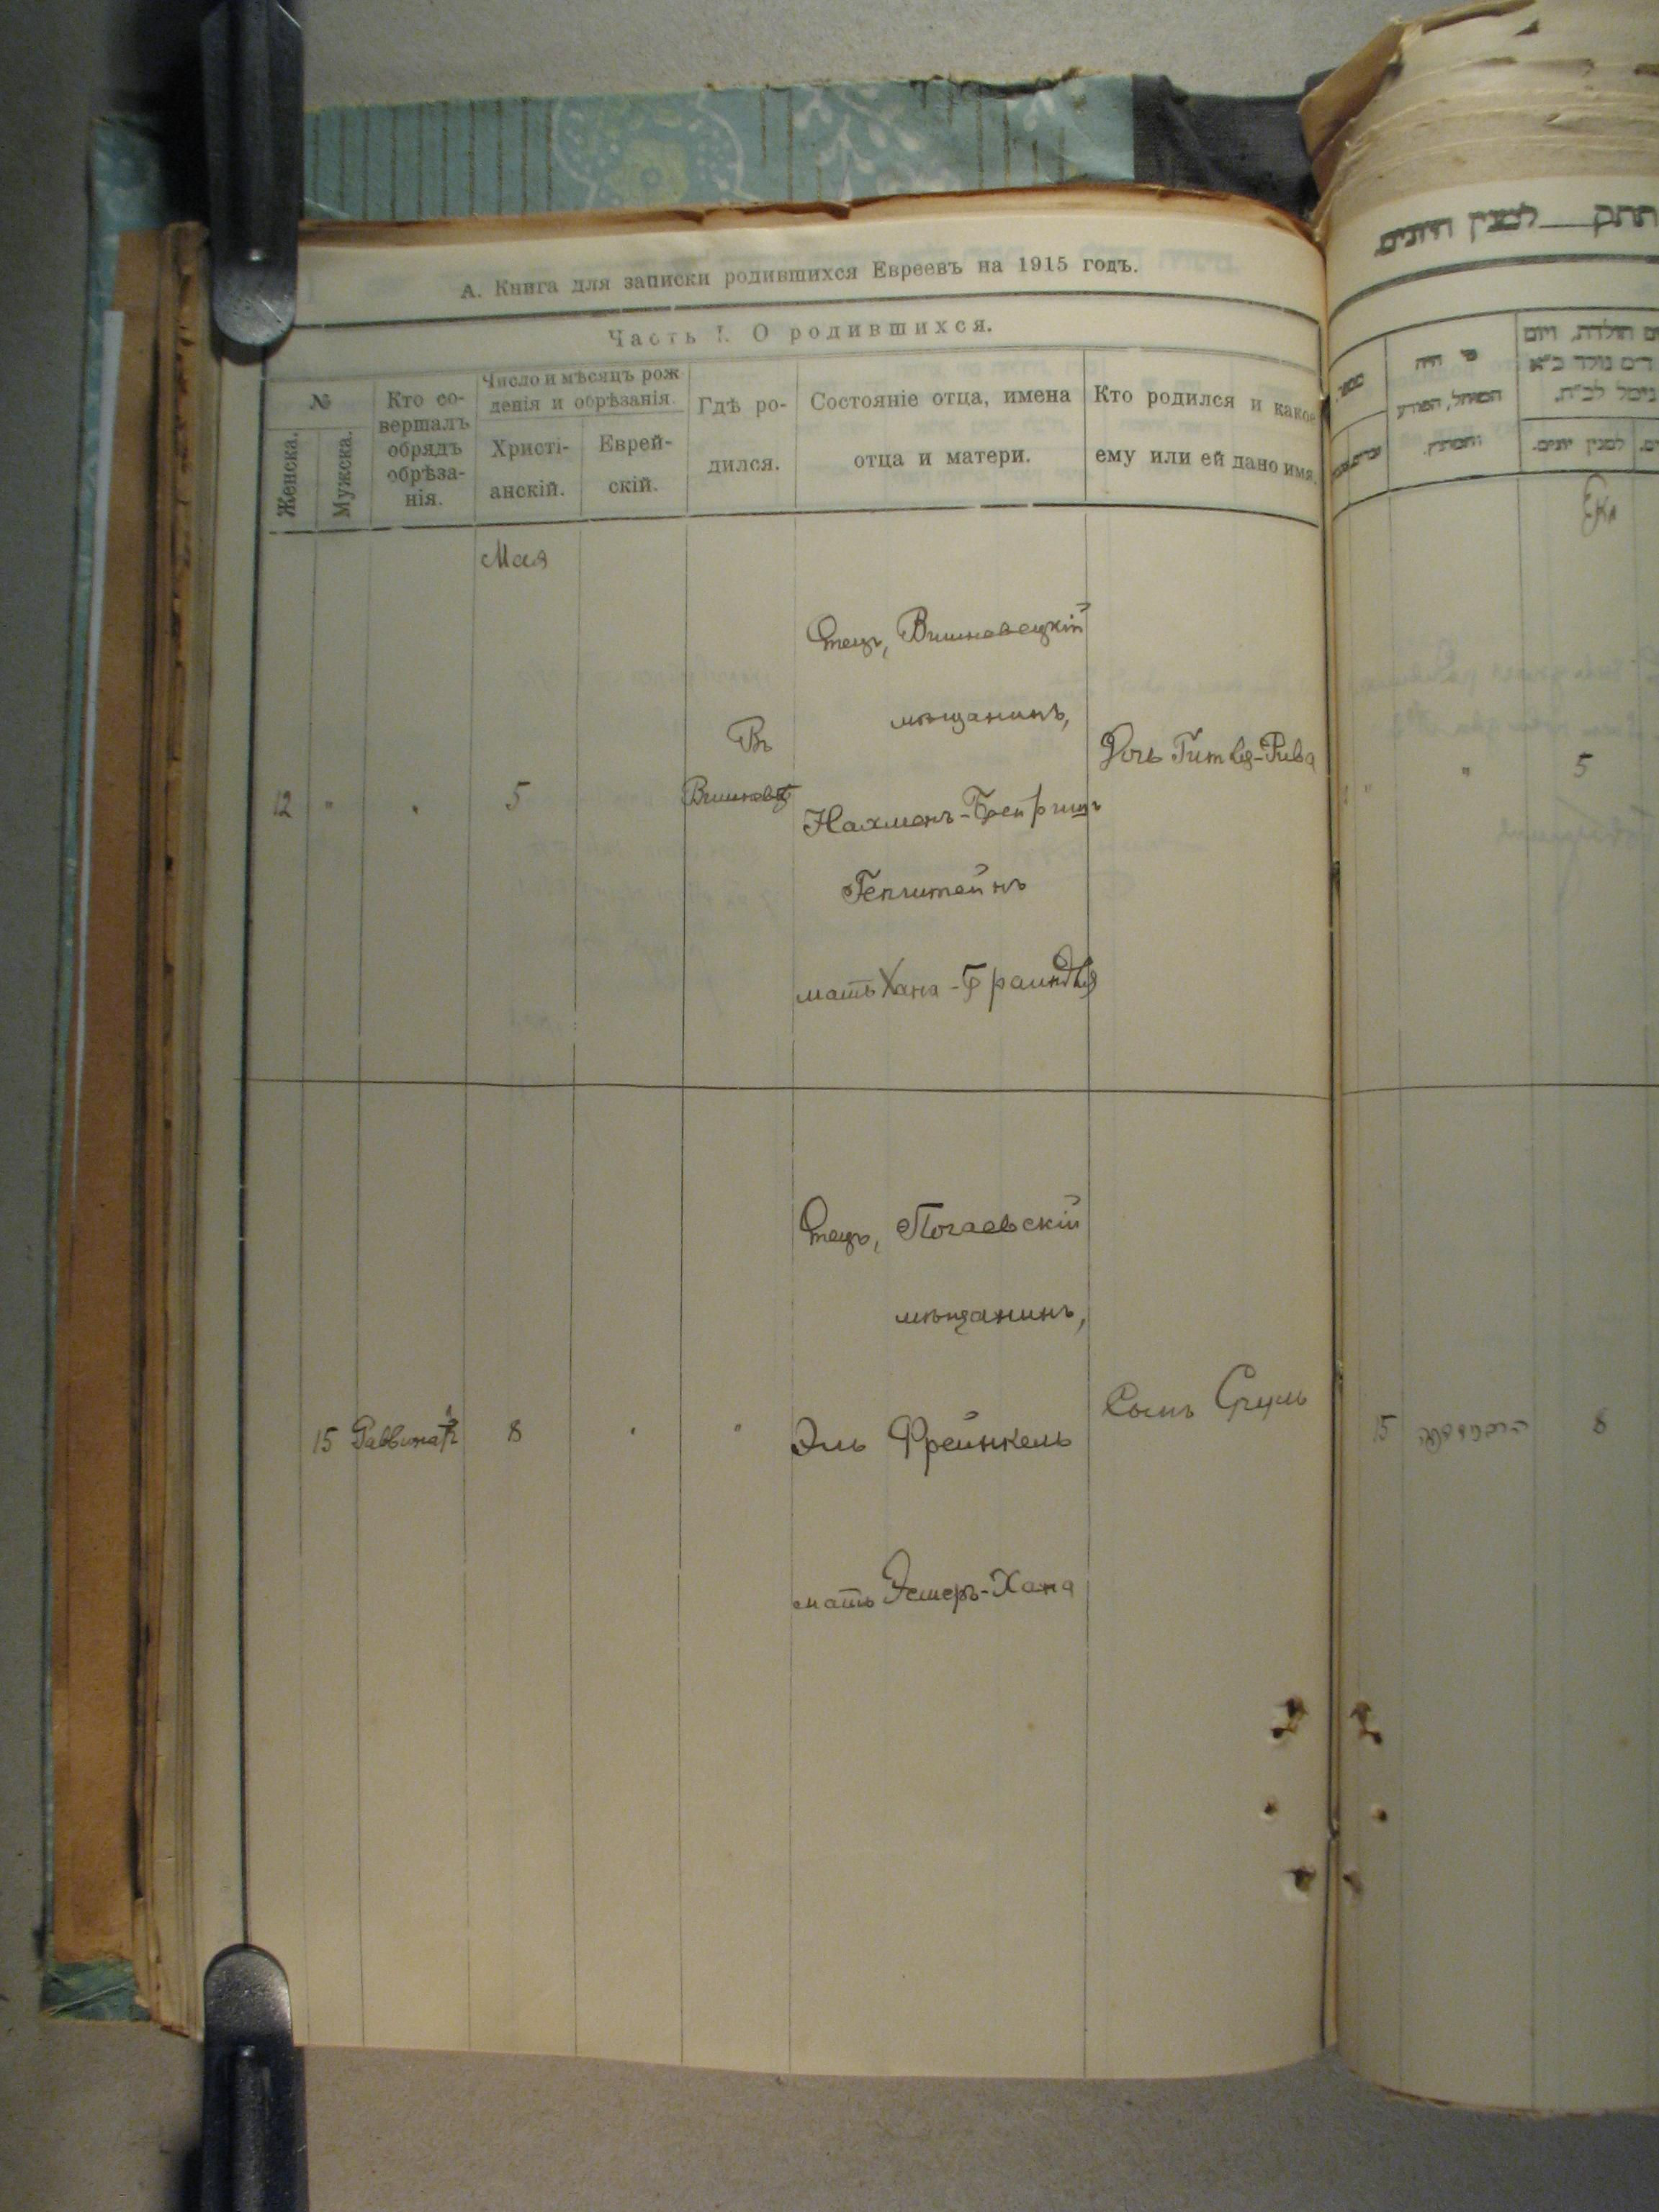 А. Книга для записки родившихся Евреевъ на 1915 годъ.
Часть I. О родившихся.
№
Женска.
Мужска.
Кто со-
вершалъ
обрядъ
обрѣза-
нія.
Число и мѣсяцъ рож
денія и обрѣзанія.
Христі-
анскій.
Еврей-
скій.
Гдѣ ро-
дился.
Состояніе отца, имена
отца и матери.
Кто родился и какое
ему или ей дано имя.
Мая
12 " " 5
Въ
Вишневцѣ
Отецъ, Вишневецкій
мѣщанинъ,
Нахманъ-
Гепштейнъ
мать Хана-Браиндля
Дочь Гитля-Рива
15 Раввинатъ 8 " "
Отецъ, Почаевскій
мѣщанинъ,
Эль Фрейнкель
мать Эстеръ-Хана
Сынъ Сруль
למנין היונים
מי היה
המוהל, הפורע
והמוצץ.
למנין יונים.
" 5
15
8